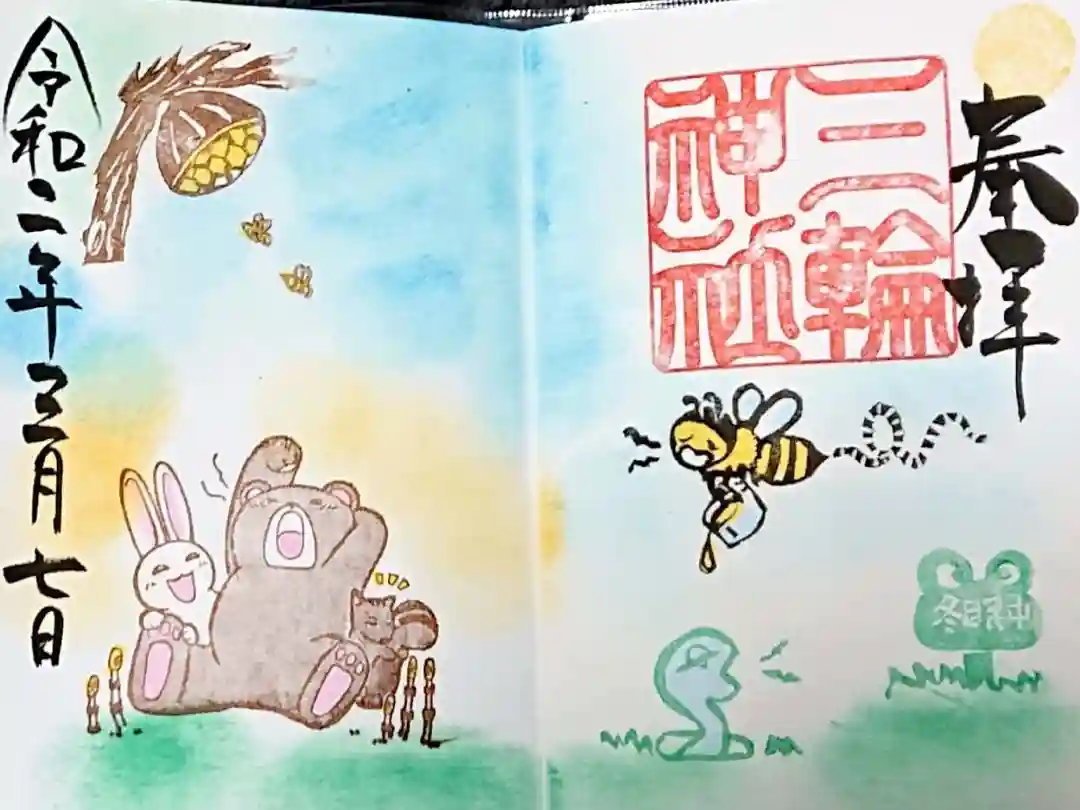 奉拝
三輪
神社
冬眠中
令和二年三月七日